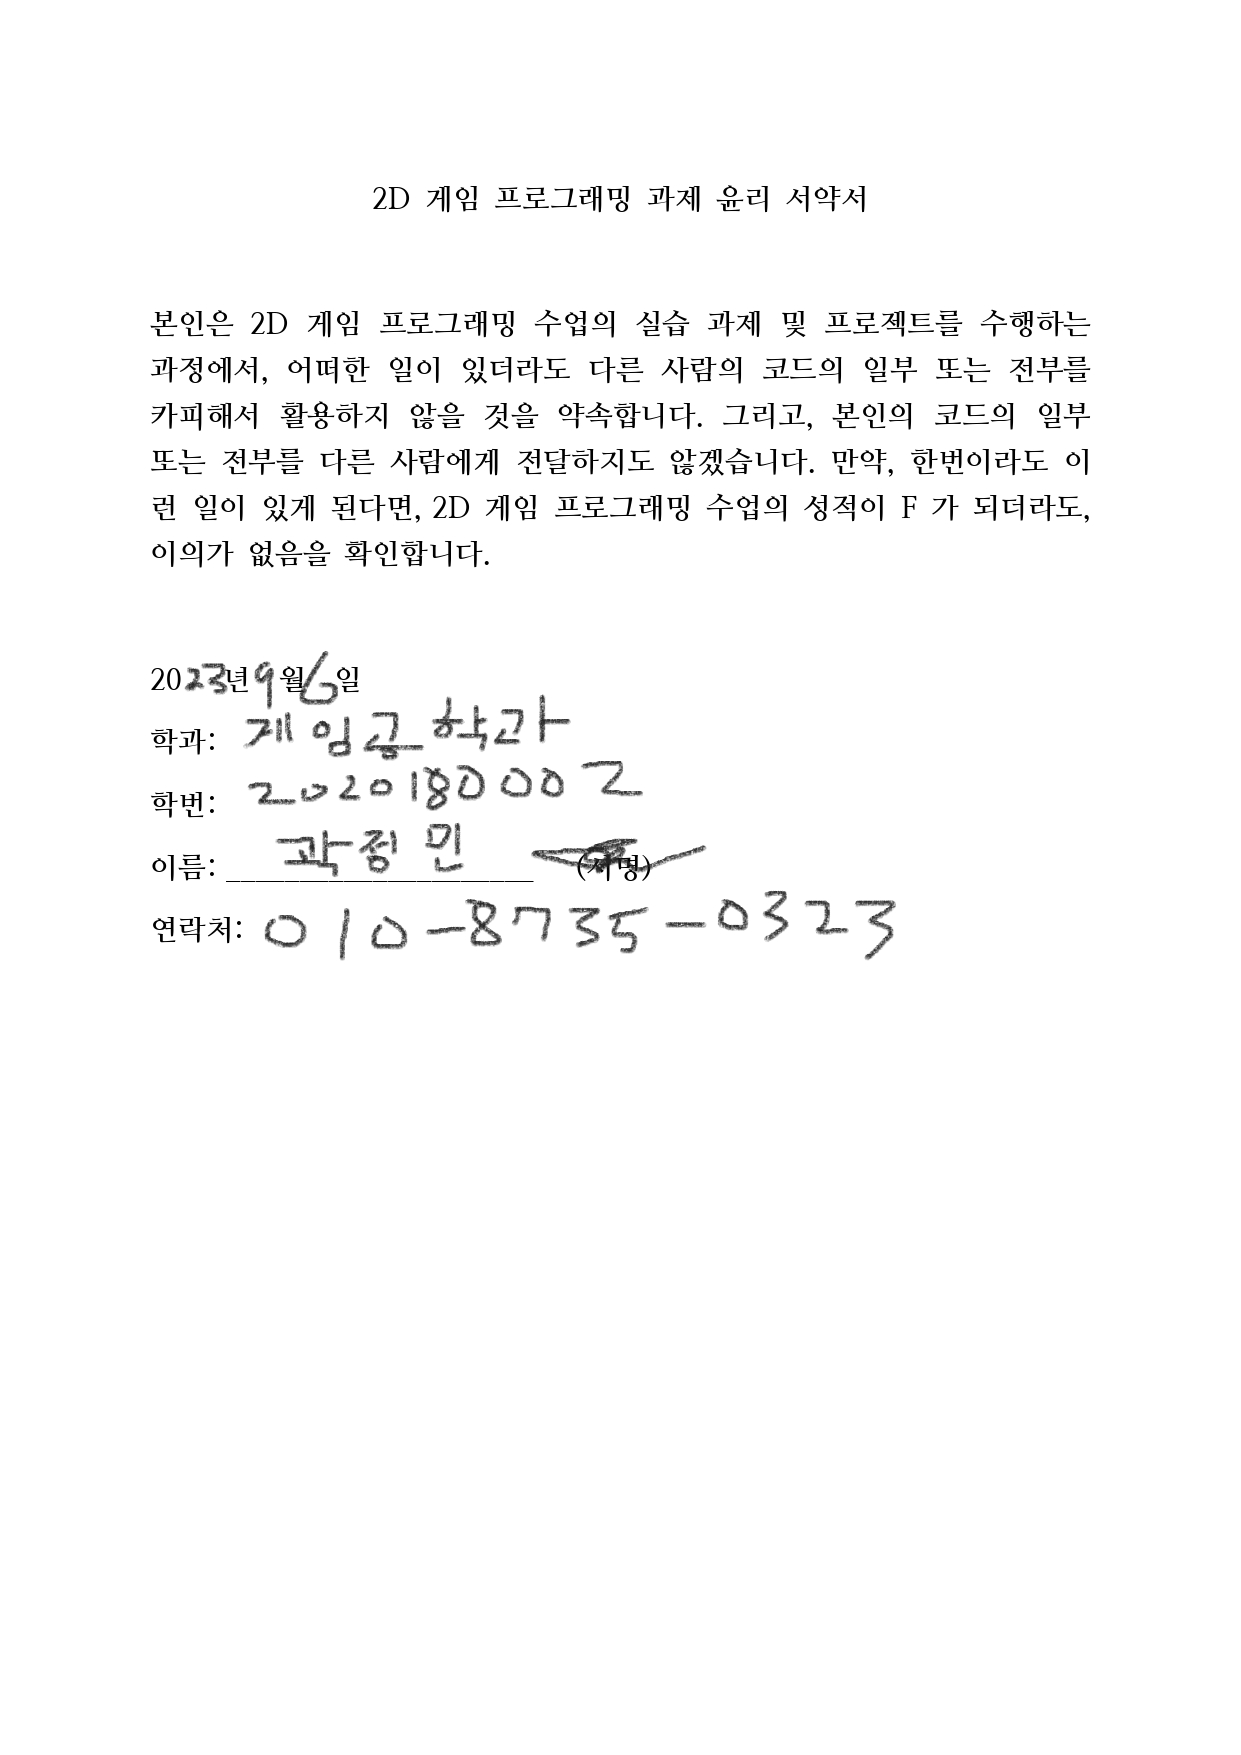 2D 게임 프로그래밍 과제 윤리 서약서
본인은 2D 게임 프로그래밍 수업의 실습 과제 및 프로젝트를 수행하는
과정에서, 어떠한 일이 있더라도 다른 사람의 코드의 일부 또는 전부를
카피해서 활용하지 않을 것을 약속합니다. 그리고, 본인의 코드의 일부
또는 전부를 다른 사람에게 전달하지도 않겠습니다. 만약, 한번이라도 이
런 일이 있게 된다면, 2D 게임 프로그래밍 수업의 성적이 F 가 되더라도,
이의가 없음을 확인합니다.
2023년 9월 6일
학과: 게임공학과
학번: 2020180002
이름: 곽정민 (서명)
연락처: 010-8735-0323